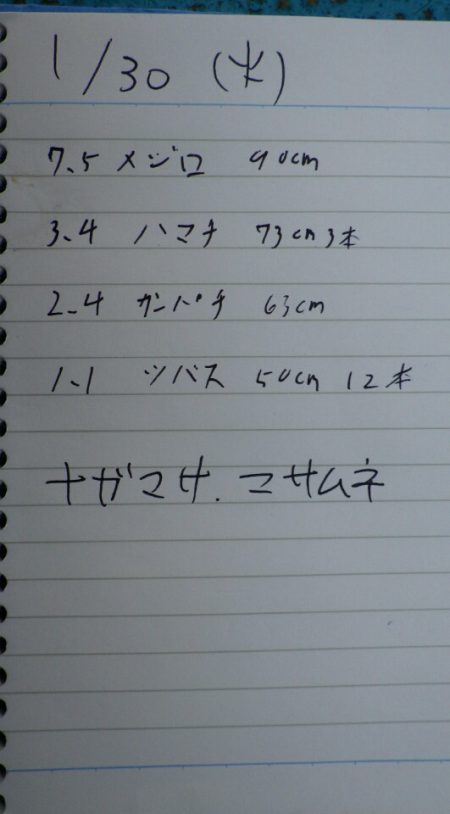 1/30 (火)
7.5 メジロ 90cm
3.4 ハマチ 73cm 3本
2.4 カンパチ 63cm
1.1 ツバス 50cm 12本
ナガマサ. マサムネ